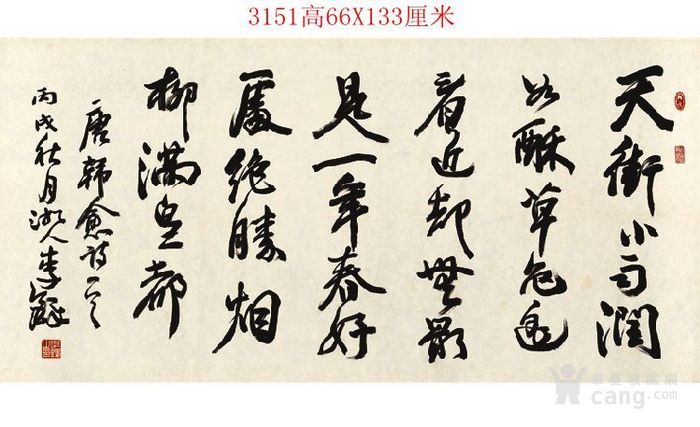 3151高66X133厘米
天街小雨潤
如酥草色遥
看近却無最
是一年春好
處絶勝烟
柳滿皇都
唐韓愈诗一首
丙戌秋月湘人李鐸
华夏收藏网
cang.com